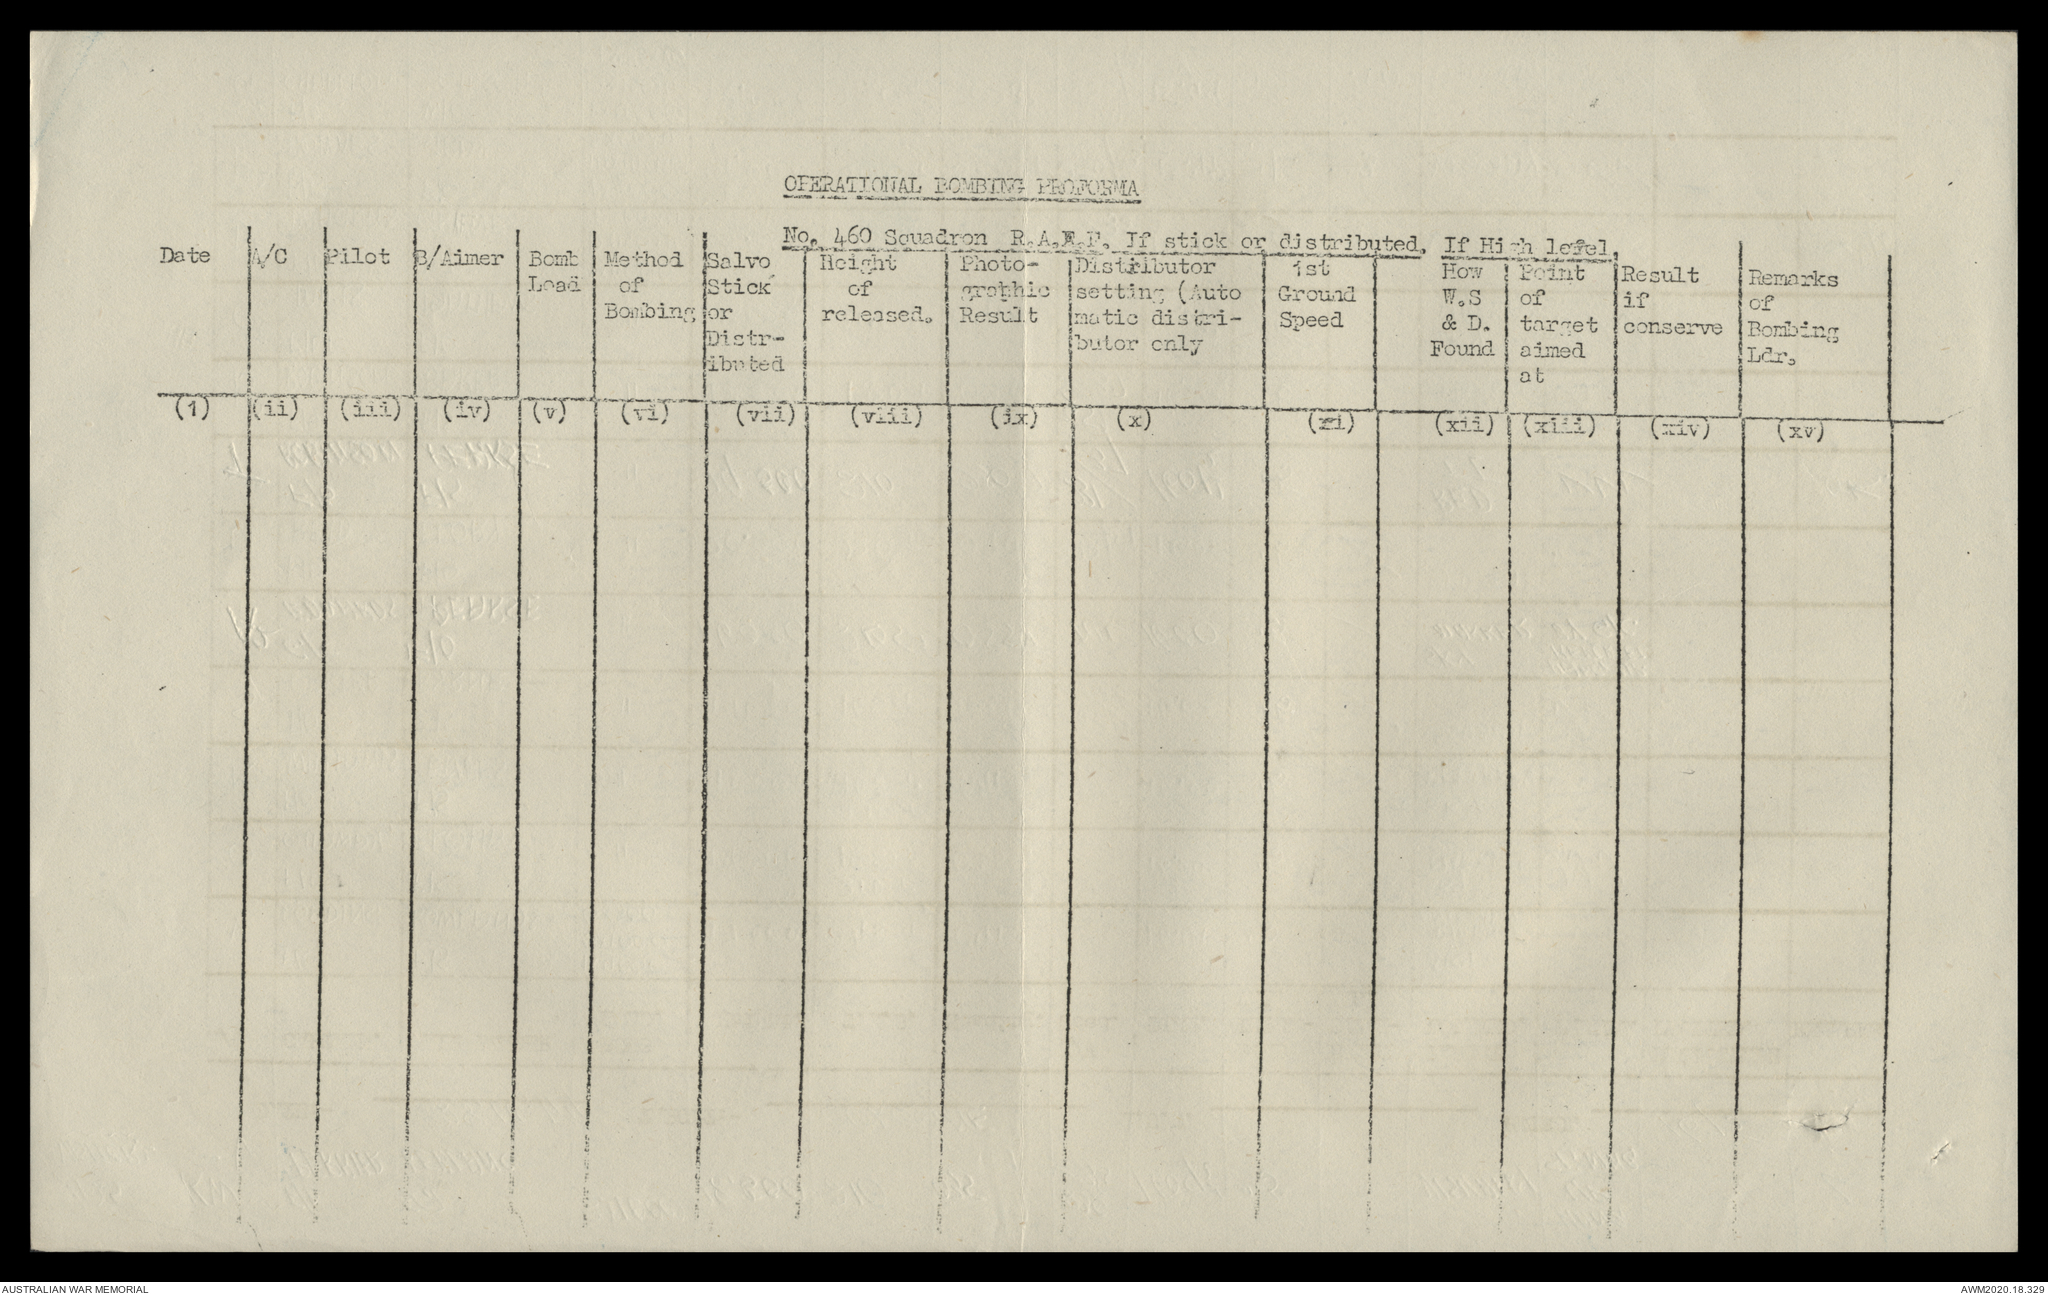 OPERATIONAL BOMBING PROFORMA
No. 460 Squadron R.A.A.F. If stick or distributed, If High level,
Date
A/C
Pilot
B/Aimer
Bomb
Load
Method
of
Bombing
Salvo
Stick
or
Distr-
ibuted
Height
of
released.
Photo-
graphic
Result
Distributor
setting (Auto
matic distri-
butor only
1st
Ground
Speed
How
W.S
& D.
Found
Point
of
target
aimed
at
Result
if
conserve
Remarks
of
Bombing
Ldr.
(1) (ii) (iii) (iv) (v) (vi) (vii) (viii) (ix) (x) (xi) (xii) (xiii) (xiv) (xv)
AUSTRALIAN WAR MEMORIAL
AWM2020.18.329